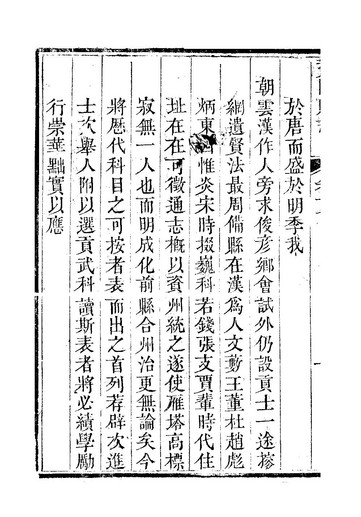 於唐而盛於明季我
朝雲漢作人旁求俊彥鄉會試外仍設貢士一途搜
網遺賢法最周備縣在漢爲人文藪王董杜趙彪
炳東惟炎宋時掇巍科若錢張支賈輩時代住
址在在可徵通志槪以資州統之遂使雁塔高標
寂無一人也而明成化前縣合州治更無論矣今
將歷代科目之可按者表而出之首列荐辟次進
士次舉人附以選貢武科讀斯表者將必績學勵
行崇華黜實以應